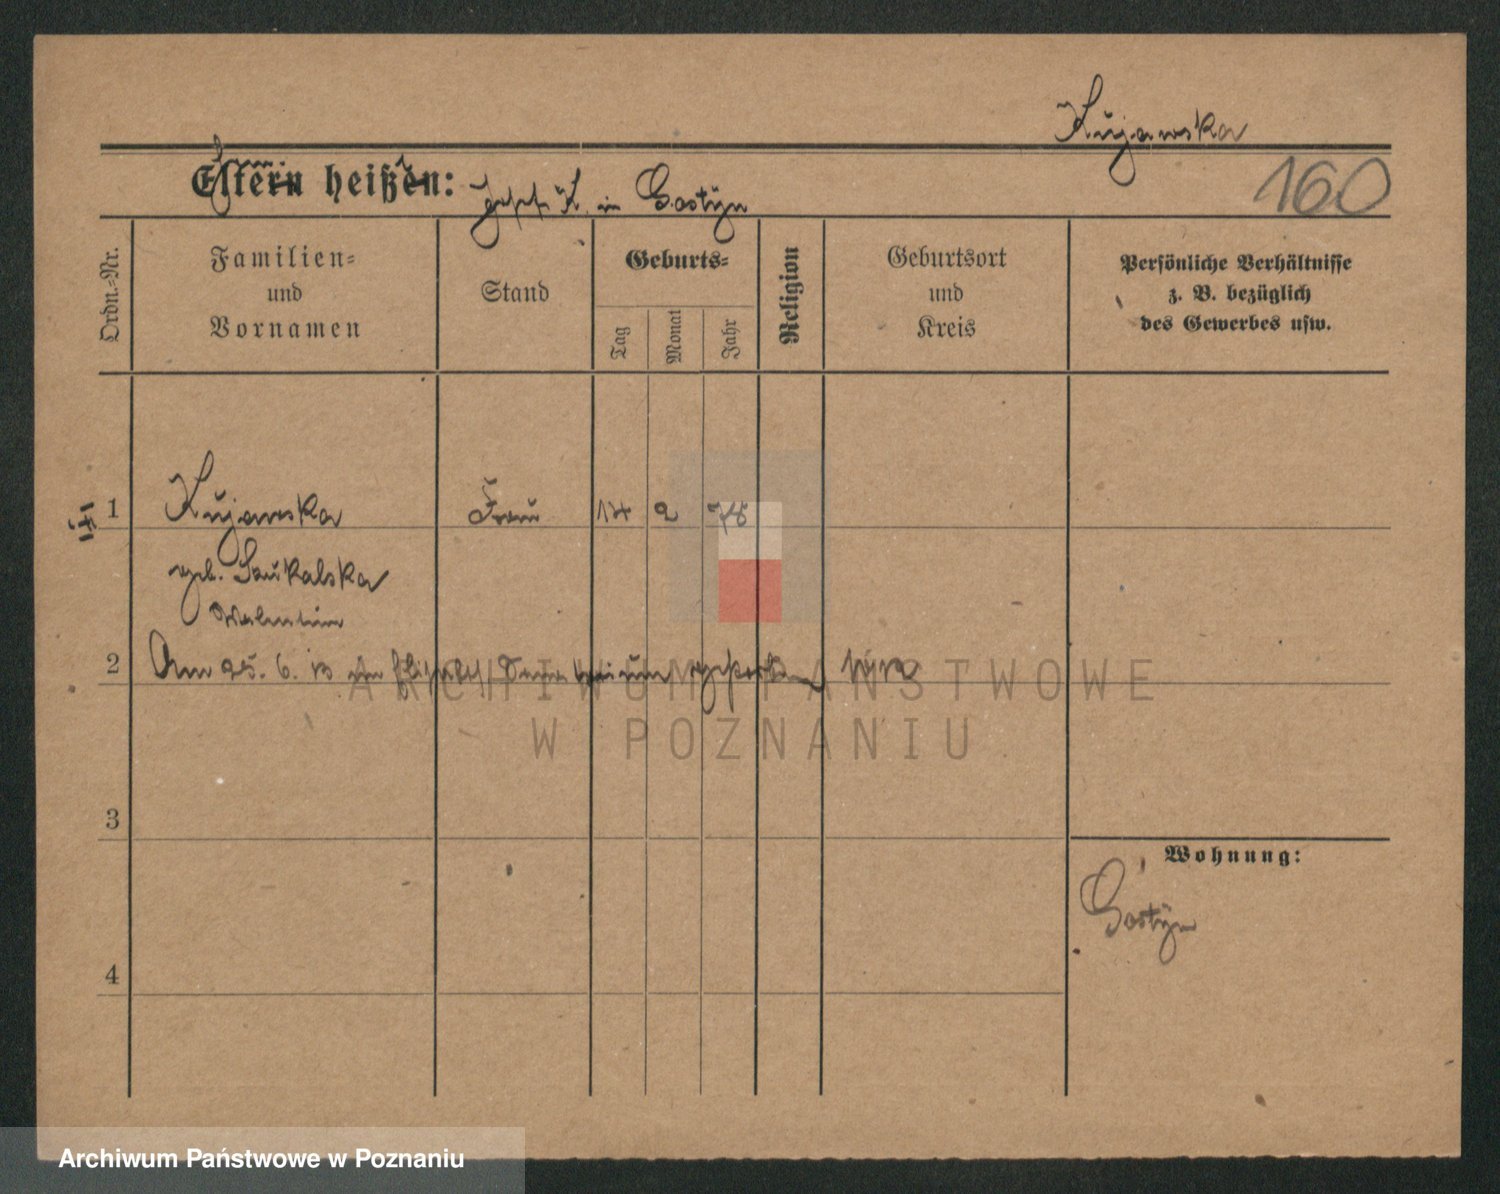 Kujawska
160
Eltern heißen: Josef K. in Gostyn
Ordn.-Nr.
Familien-
und
Vornamen
Stand
Geburts-
Tag
Monat
Jahr
Religion
Geburtsort
und
Kreis
Persönliche Verhältnisse
z. B. bezüglich
des Gewerbes usw.
1
Kujawska
Frau
14
2
78
geb.
2
Am 25. 6. in
3
4
Wohnung:
Gostyn
ARCHIWUM PAŃSTWOWE
W POZNANIU
Archiwum Państwowe w Poznaniu